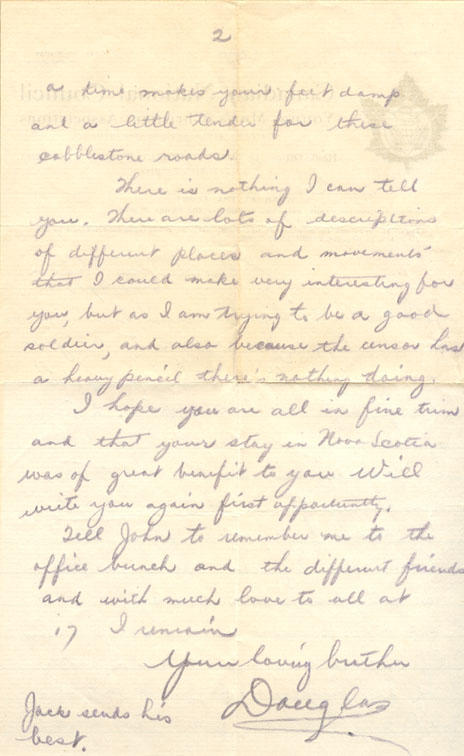 2
a time makes your feet damp
and a little tender for these
cobblestone roads.
There is nothing I can tell
you. There are lots of descriptions
of different places and movements
that I could make very interesting for
you, but as I am trying to be a good
soldier, and also because the censor has
a heavy pencil there's nothing doing.
I hope you are all in fine trim
and that your stay in Nova Scotia
was of great benefit to you Will
write you again first opportunity.
Tell John to remember me to the
office bunch and the different friends
and with much love to all at
17 I remain
Your loving brother
Douglas
Jack sends his
best.